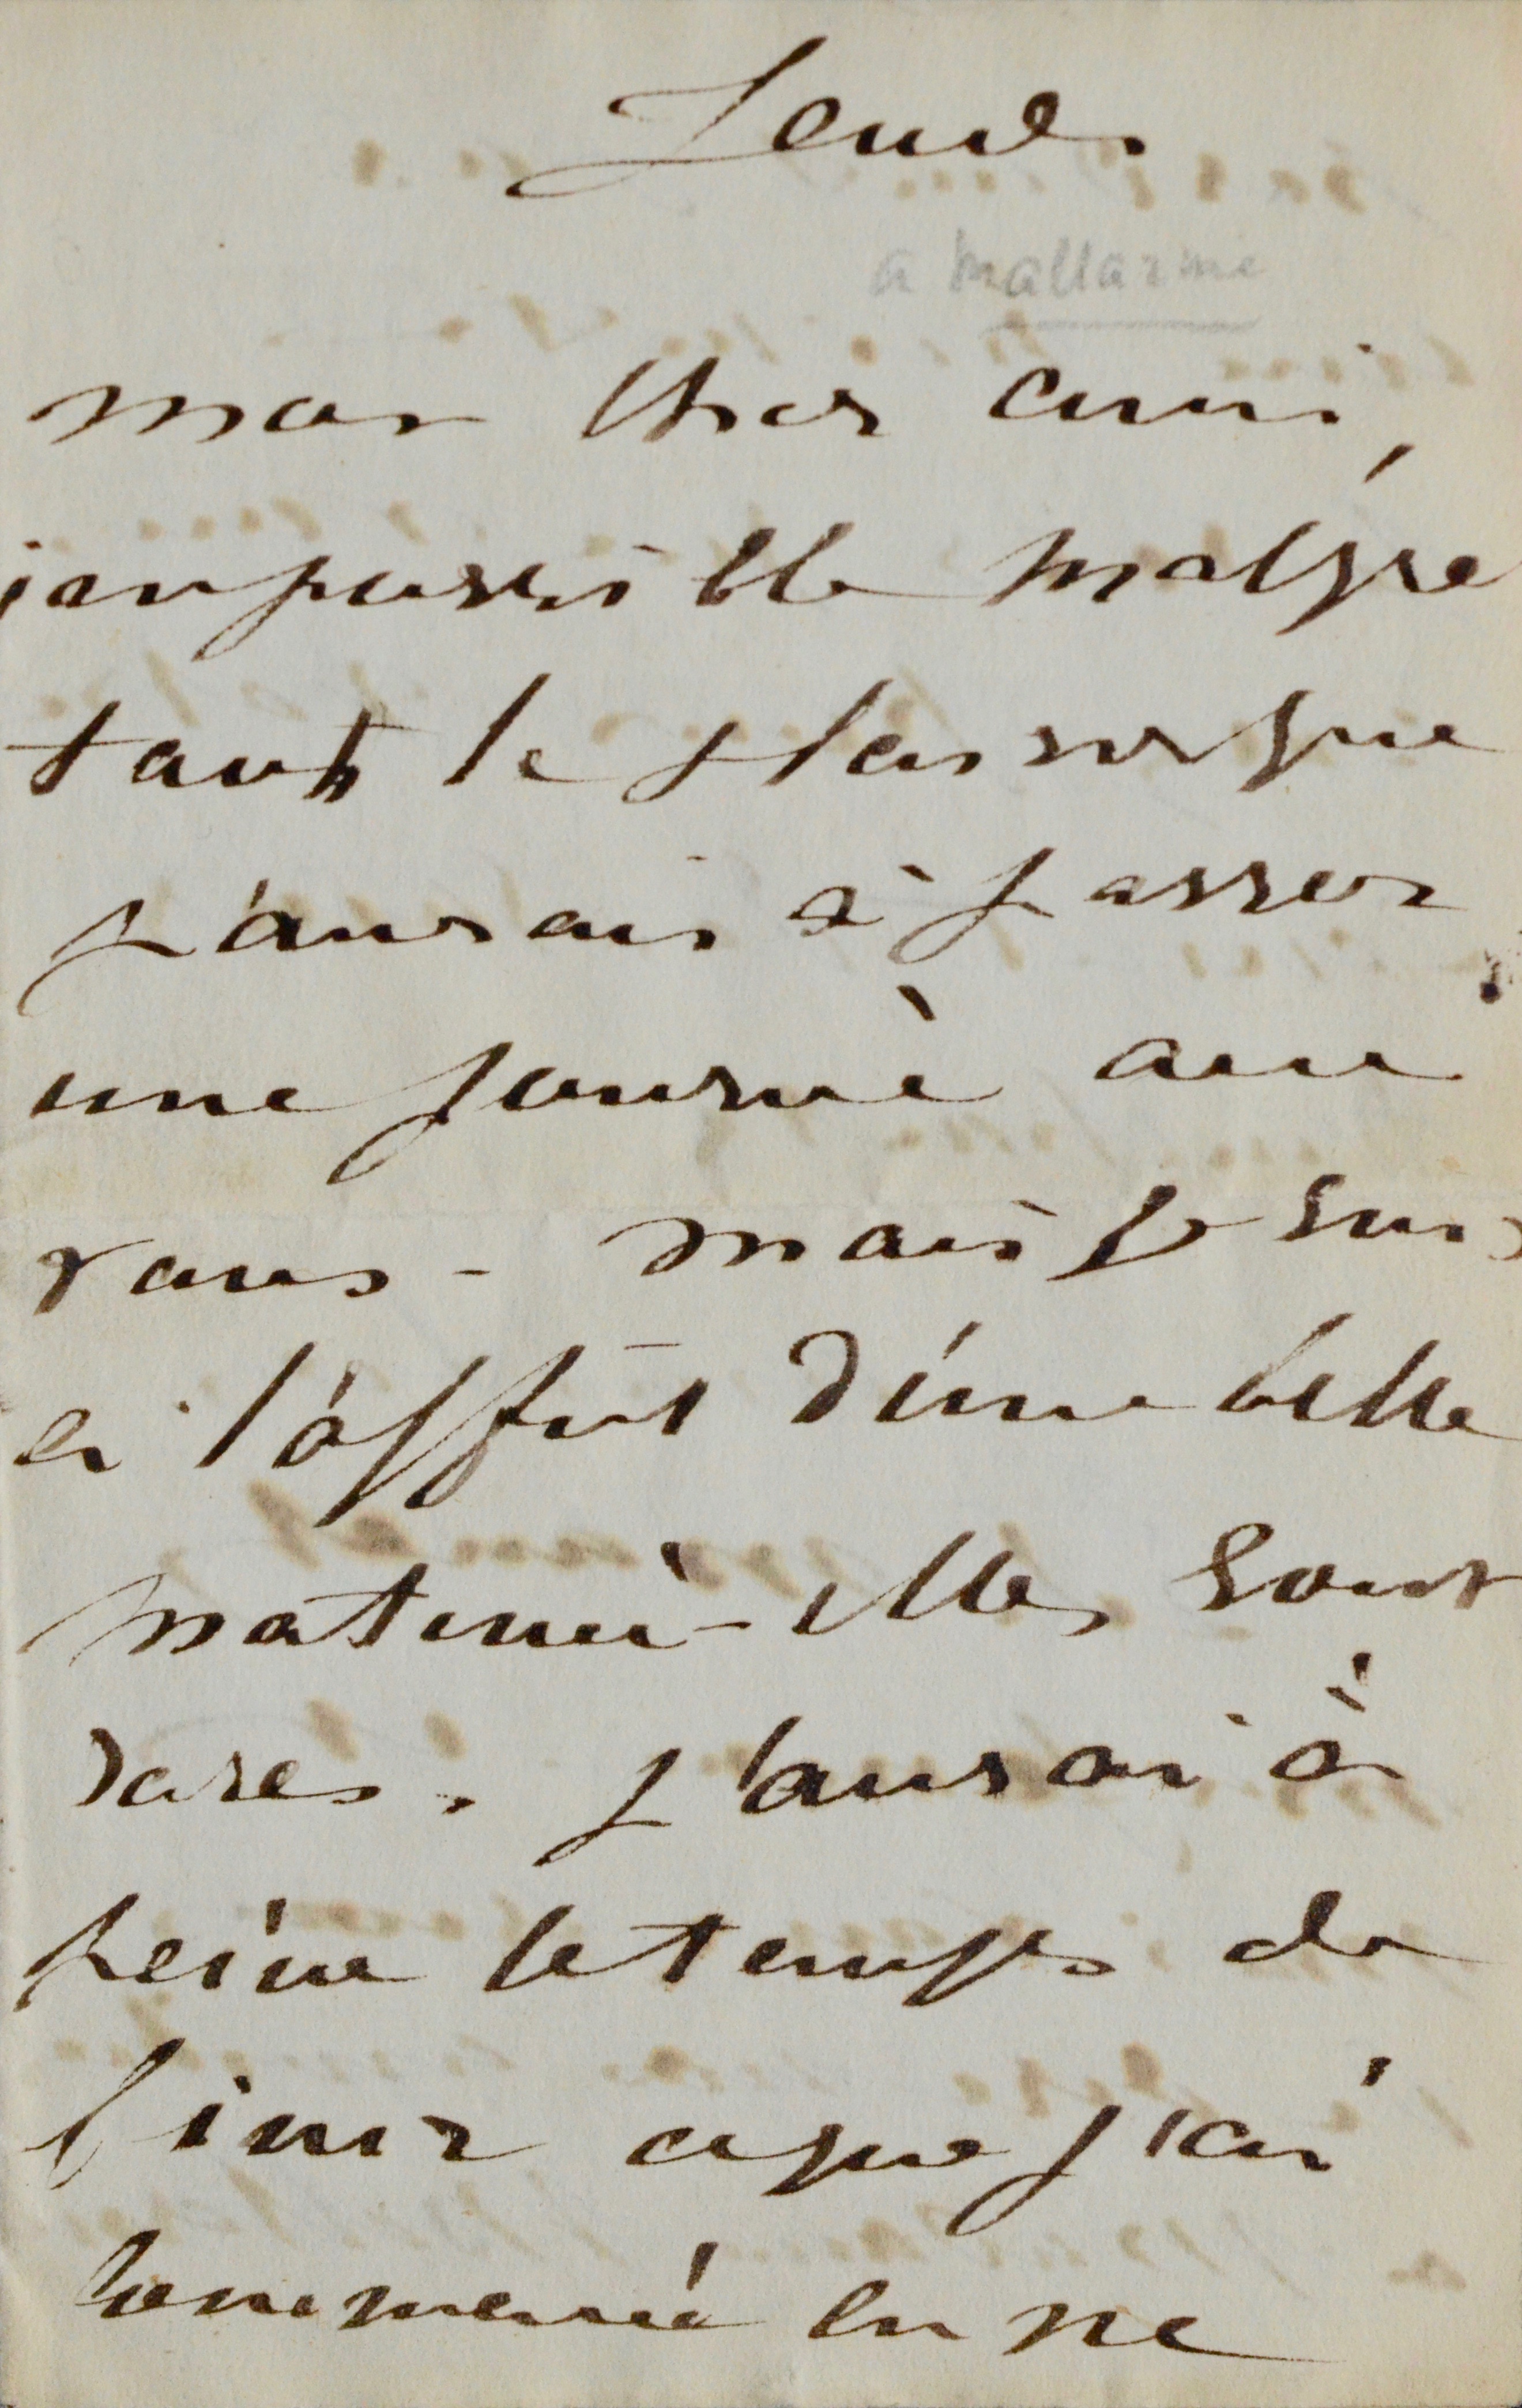 Jeudi
a Mallarmé
mon cher ami,
impossible malgré
tout le plaisir que
j'aurais à passer
une journée avec
vous - mais je suis
à l'affût d'une belle
matinée - elles sont
rares. j'aurai à
peine le temps de
finir ce que j'ai
commencé en ne